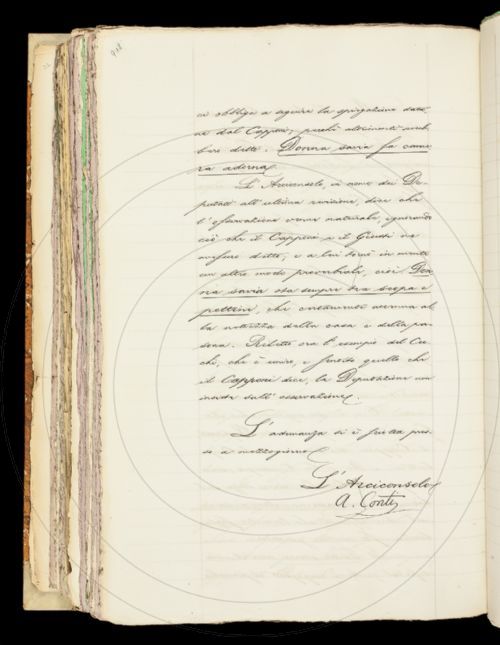 ci obbliga a seguire la spiegazione data-
ne dal Capponi, perchè altrimenti sareb-
be detto. Donna savia fa came-
ra adorna.
L'Arciconsolo, in nome dei De-
putati all'ultima revisione, dice che
l'osservazione venne naturale, ignorando
ciò che il Capponi e il Giusti ne
avessero detto, e a lui tornò in mente
un altro modo proverbiale, cioè Don-
na savia sta sempre tra scopa e
pettine, che certamente accenna al-
la nettezza della casa e della per-
sona. Riletto ora l'esempio del Cec-
chi, che è unico, e sentito quello che
il Capponi dice, la Deputazione con-
sente dall'osservazione.
L'adunanza si è sciolta pres-
so a mezzogiorno.
L'Arciconsolo
A. Conti